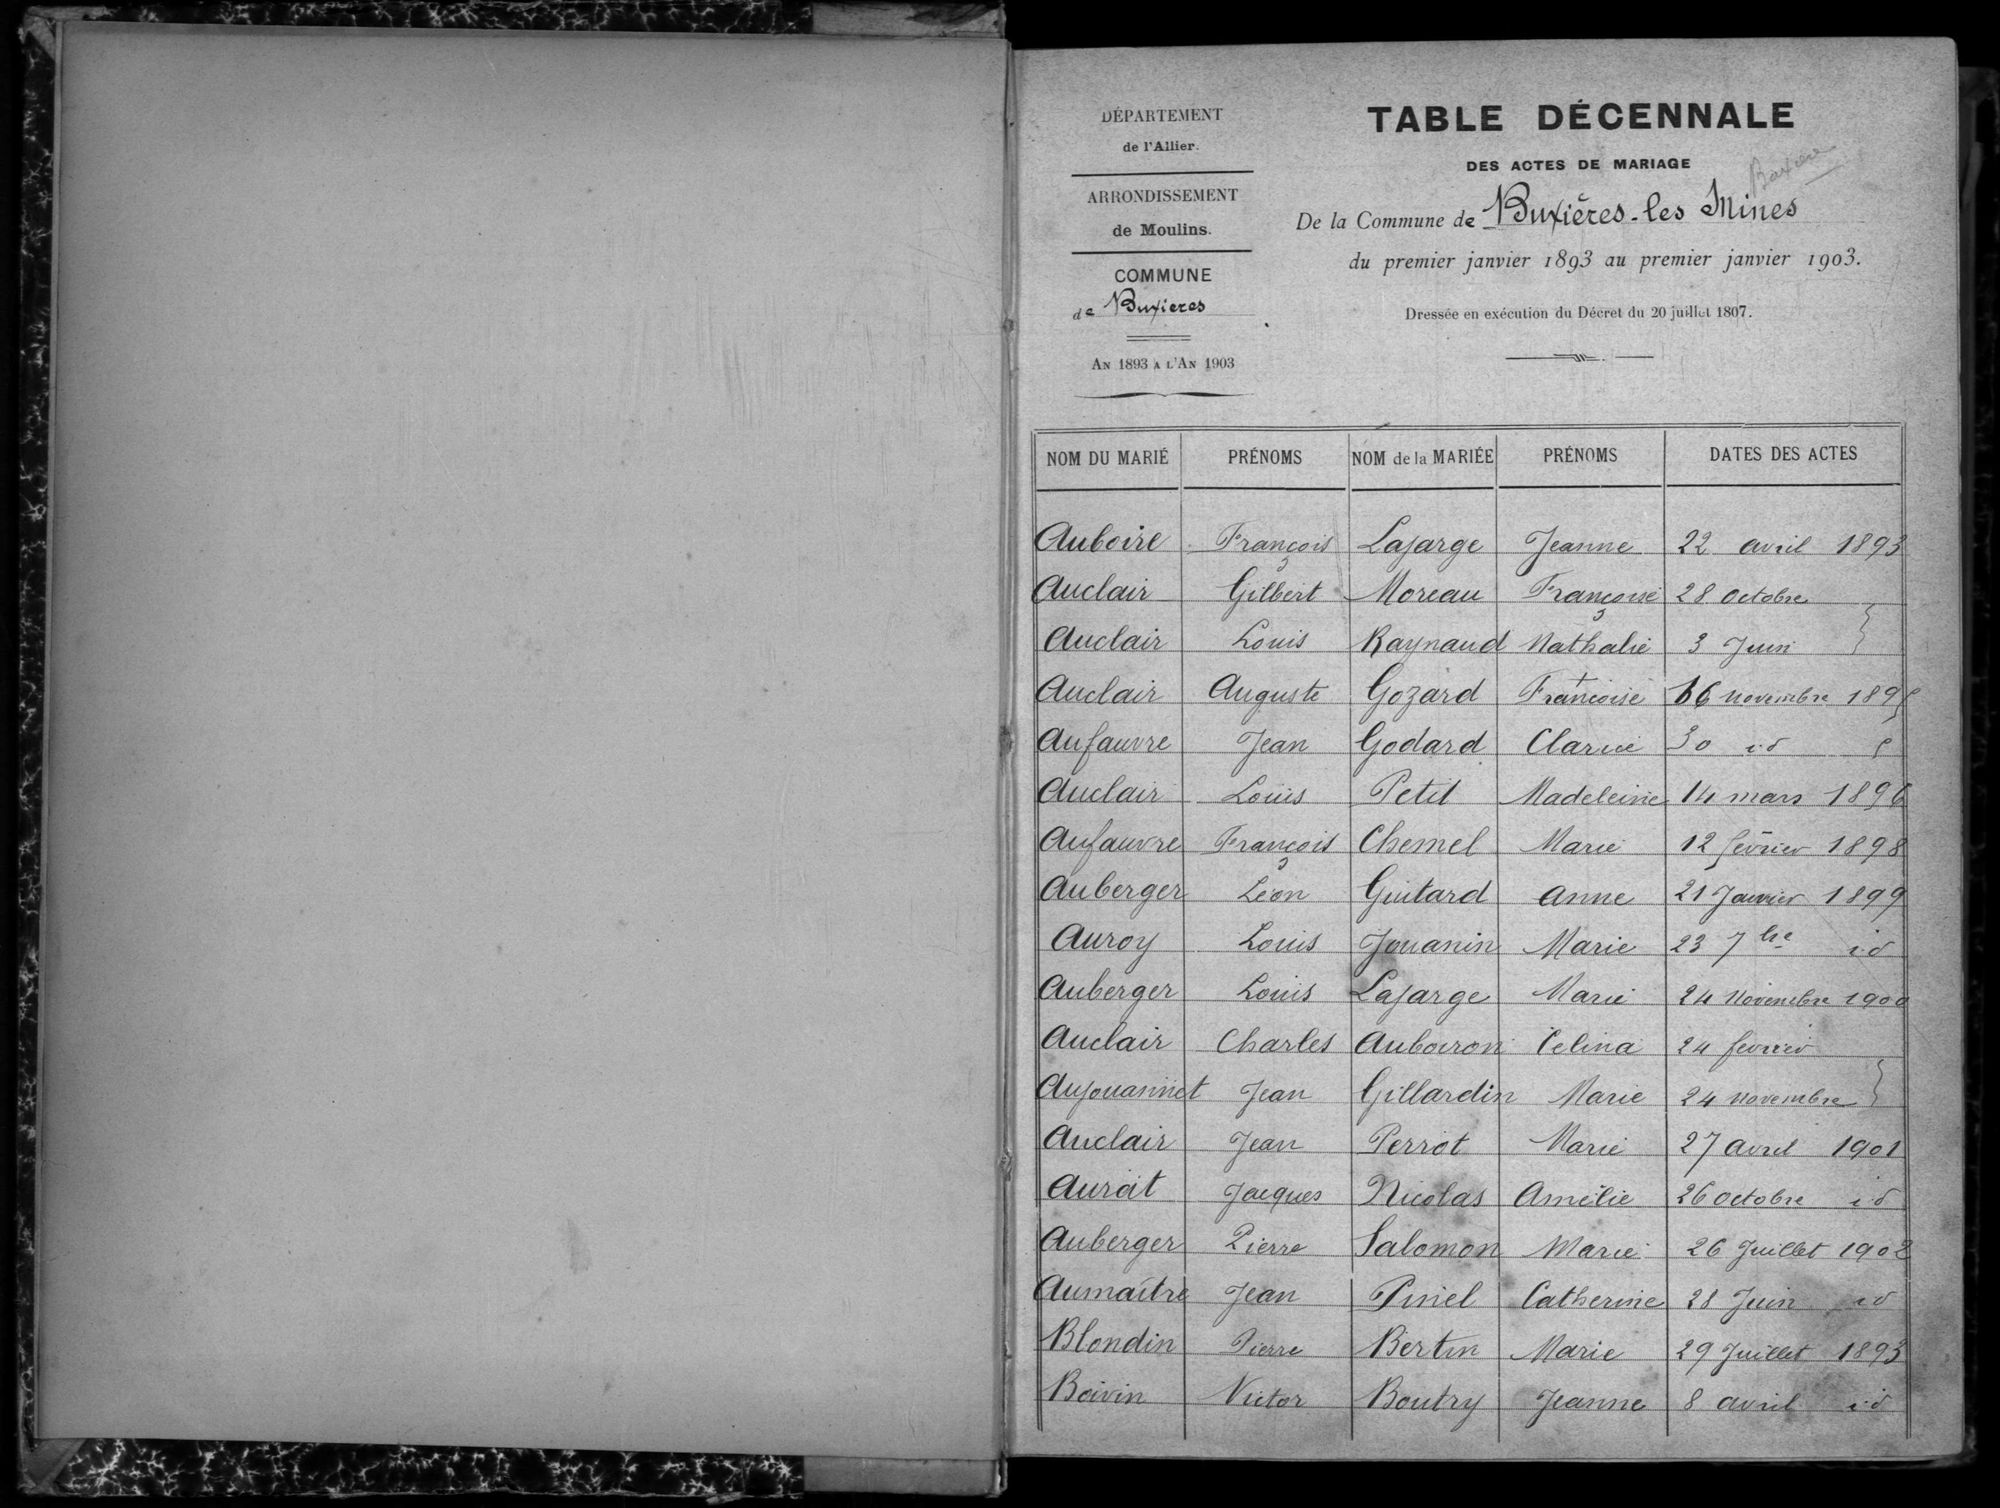 DÉPARTEMENT
de l'Allier.
ARRONDISSEMENT
de Moulins.
COMMUNE
de Buxieres
AN 1893 A L'AN 1903
TABLE DÉCENNALE
DES ACTES DE MARIAGE
De la Commune de Buxières-les Mines
du premier janvier 1893 au premier janvier 1903.
Dressée en exécution du Décret du 20 juillet 1807.
NOM DU MARIÉ PRÉNOMS NOM de la MARIÉE PRÉNOMS DATES DES ACTES
Auboire François Lafarge Jeanne 22 avril 1893
Auclair Gilbert Moreau Françoise 28 octobre
Auclair Louis Raynaud Nathalie 3 Juin
Auclair Auguste Gozard Françoise 16 novembre
Aufauvre Jean Godard Clarice 30 id
Auclair Louis Petit Madeleine 14 mars 1896
Aufauvre François Chemel Marie 12 février 1898
Auberger Léon Guitard Anne 21 Janvier 1899
Auroy Louis Jouanin Marie 23 7bre id
Auberger Louis Lafarge Marie 24 Novembre 1900
Auclair Charles Auboiron Celina 24 fevrier
Aujouannet Jean Gillardin Marie 24 novembre
Auclair Jean Perrot Marie 27 avril 1901
Aurat Jacques Nicolas Amélie 26 octobre id
Auberger Pierre Salomon Marie 26 Juillet 1902
Aumaître Jean Pinel Catherine 28 Juin id
Blondin Pierre Bertin Marie 29 Juillet 1893
Boivin Victor Boutry Jeanne 8 avril id